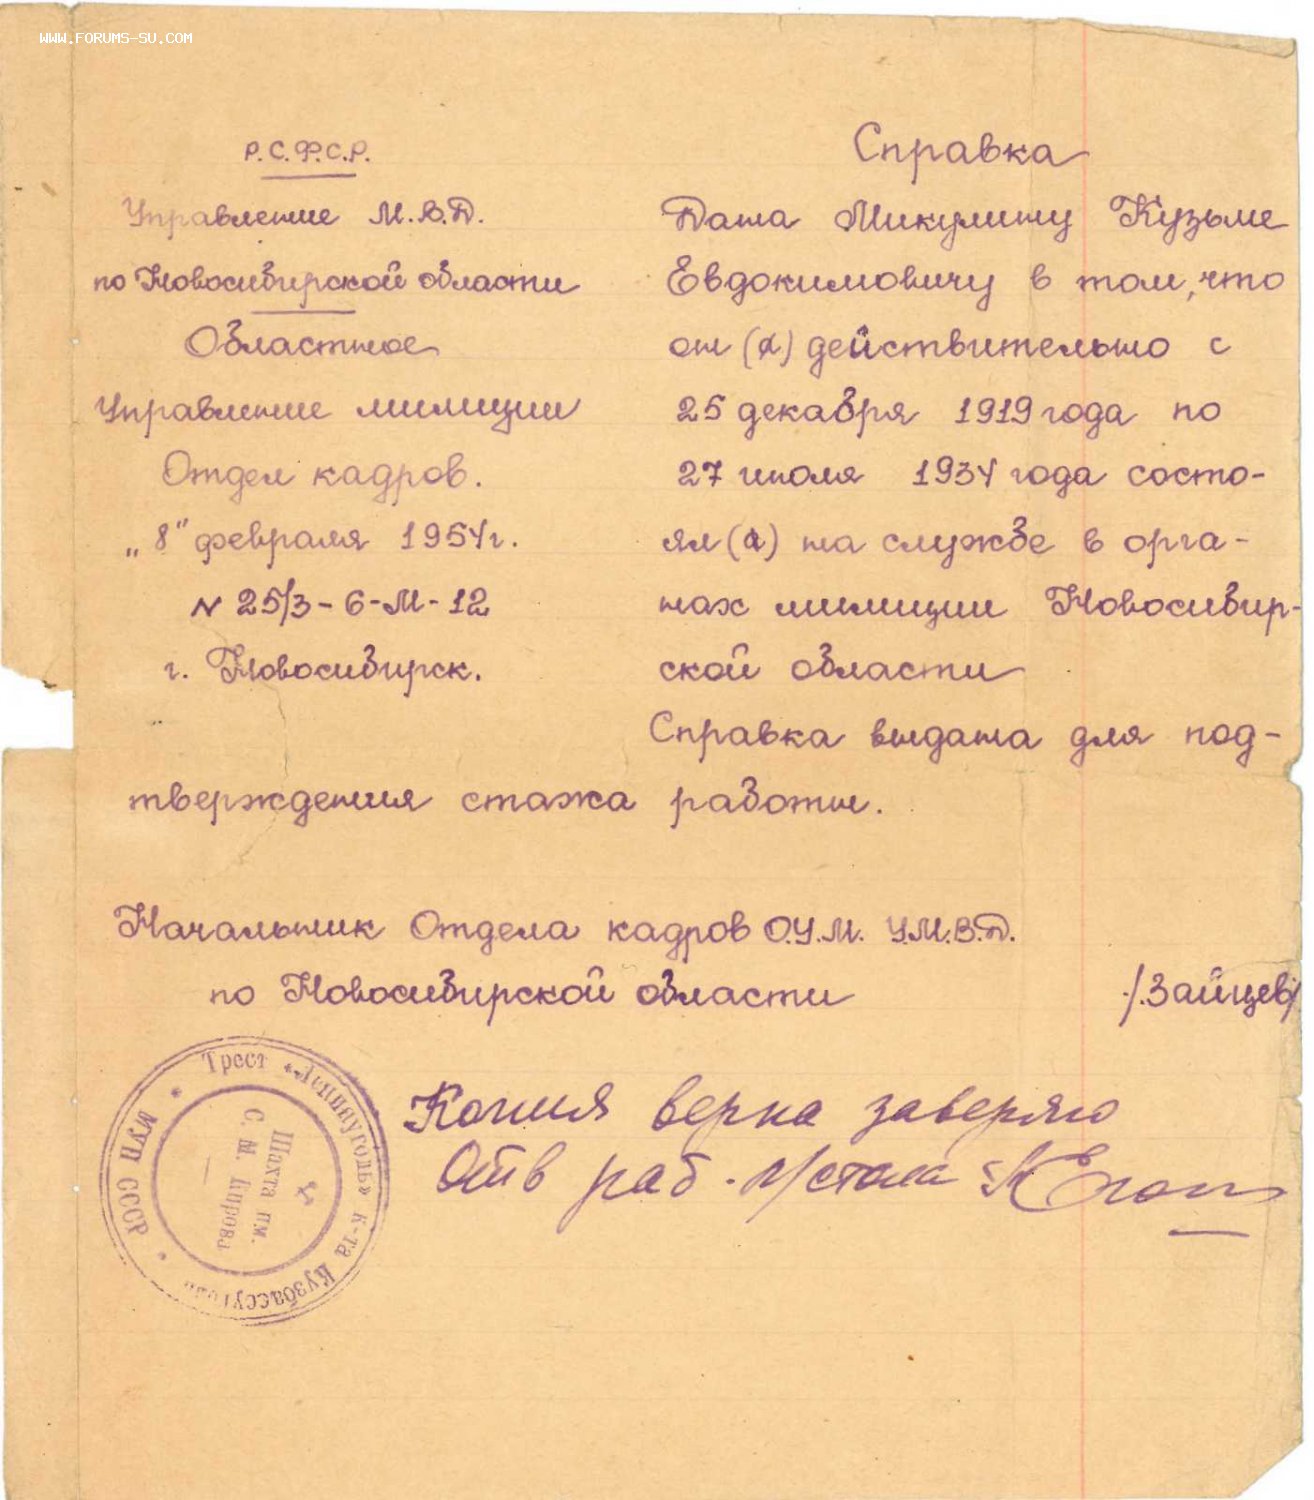 WWW.FORUMS-SU.COM
Р.С.Ф.С.Р.
Управление М.В.Д.
по Новосибирской области
Областное
Управление милиции
Отдел кадров.
„8" февраля 1954г.
N 25/3-6-М-12
г. Новосибирск.
Справка
Дана Микулину Кузьме
Евдокимовичу в том, что
он (а) действительно с
25 декабря 1919 года по
27 июля 1934 года состо-
ял (а) на службе в орга-
нах милиции Новосибир-
ской области
Справка выдана для под-
тверждения стажа работы.
Начальник Отдела кадров О.У.М. У.М.В.Д.
по Новосибирской области
/.Зайцев/
Копия верна заверяю
Отв раб. п/стола
Трест «Ленинуголь» к-та Кузбассуголь
МУП СССР
Шахта им.
С. М. Кирова